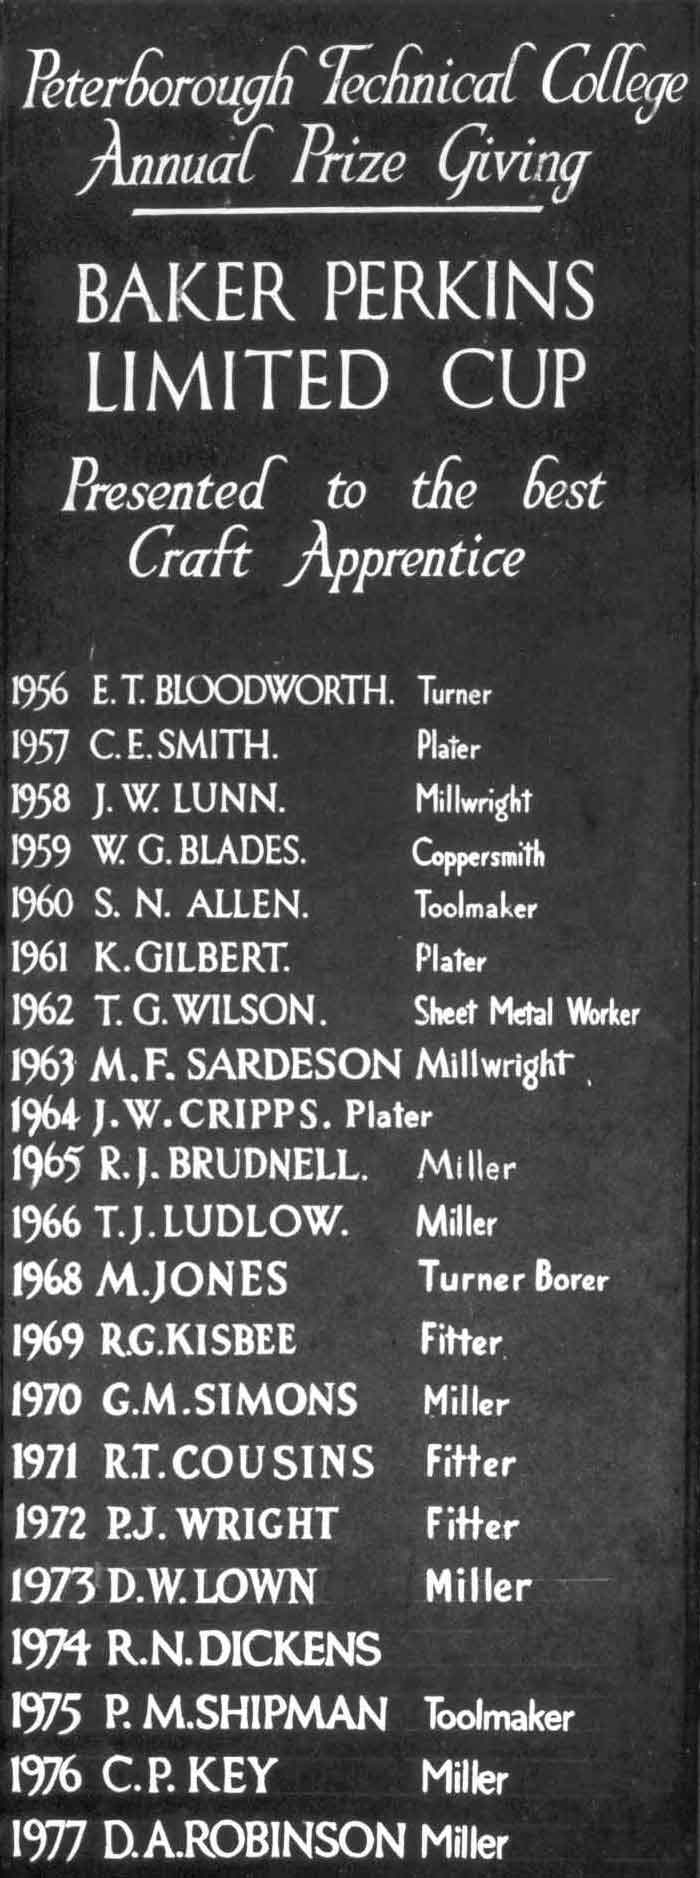 Peterborough Technical College
Annual Prize Giving
BAKER PERKINS
LIMITED CUP
Presented to the best
Craft Apprentice
1956 E.T. BLOODWORTH. Turner
1957 C.E. SMITH. Plater
1958 J.W. LUNN. Millwright
1959 W.G. BLADES. Coppersmith
1960 S. N. ALLEN. Toolmaker
1961 K. GILBERT. Plater
1962 T. G. WILSON. Sheet Metal Worker
1963 M.F. SARDESON Millwright
1964 J.W. CRIPPS. Plater
1965 R.J. BRUDNELL. Miller
1966 T.J. LUDLOW. Miller
1968 M. JONES Turner Borer
1969 R.G. KISBEE Fitter
1970 G.M. SIMONS Miller
1971 R.T. COUSINS Fitter
1972 P.J. WRIGHT Fitter
1973 D.W. LOWN Miller
1974 R.N. DICKENS
1975 P. M. SHIPMAN Toolmaker
1976 C.P. KEY Miller
1977 D.A. ROBINSON Miller